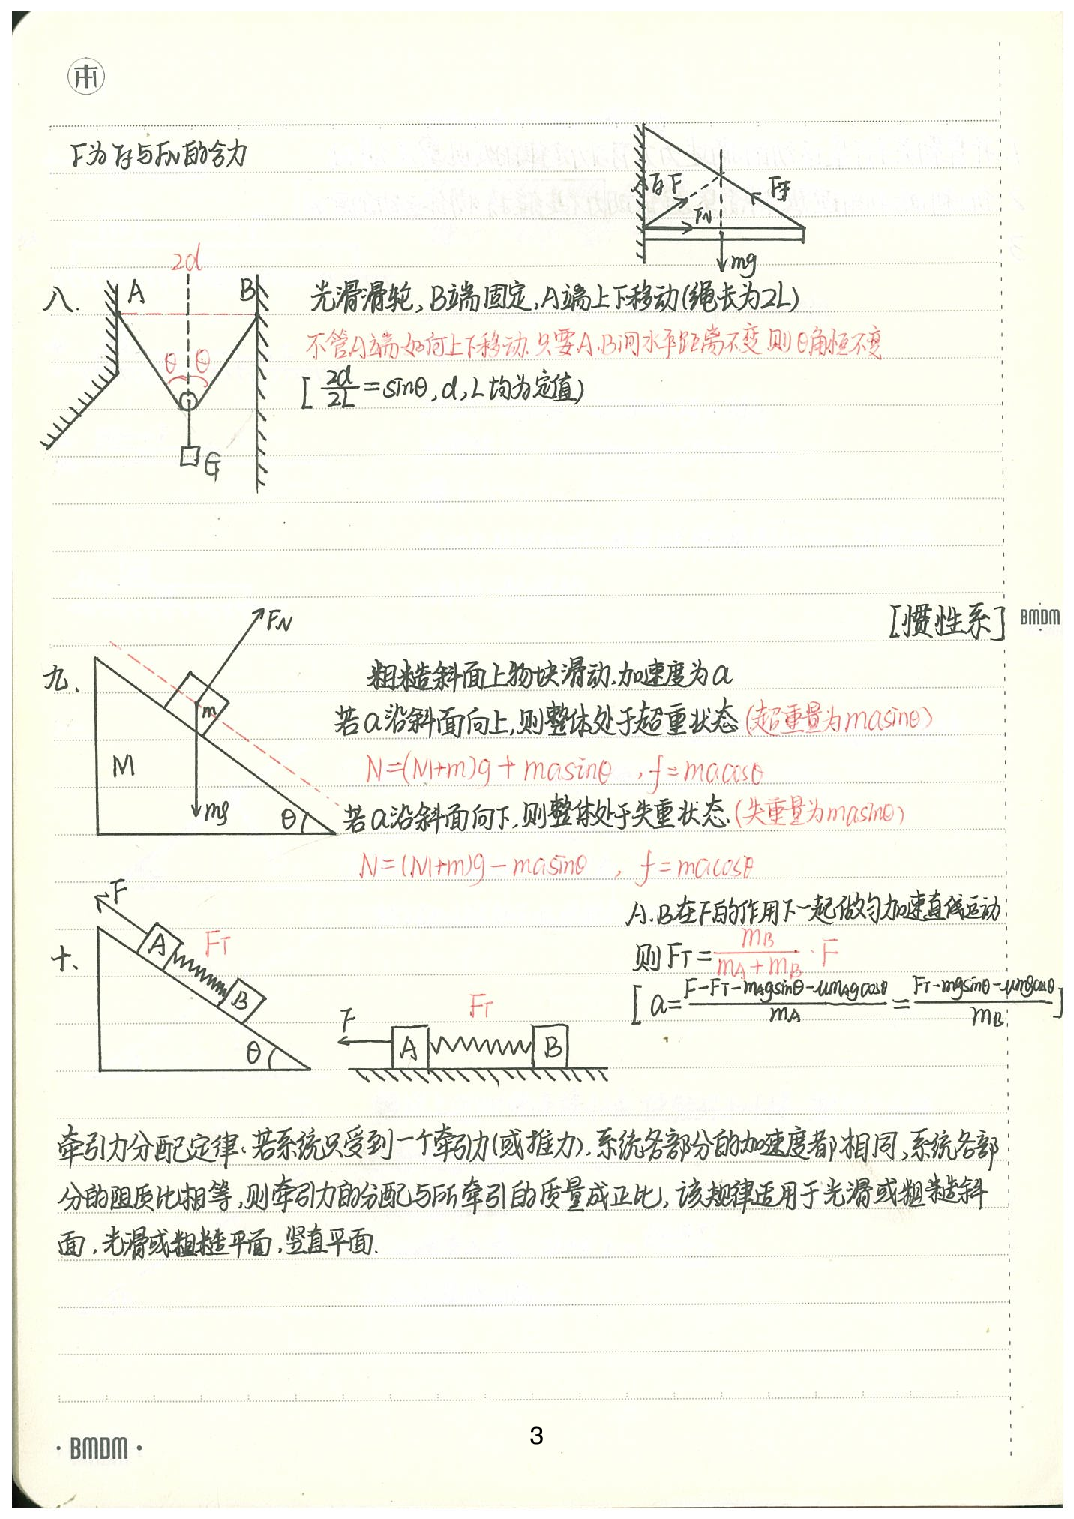 F为Ff与FN的合力
Ff
F
FN
F手
mg
2d
A
B
θ
θ
G
八.
光滑滑轮,B端固定,A端上下移动(绳长为2L)
不管A端如何上下移动.只要A.B间水平距离不变则θ角恒不变
[2d/2L=sinθ,d,L均为定值)
[惯性系]
BMDM
九.
FN
m
M
mg
θ
粗糙斜面上物块滑动.加速度为a
若a沿斜面向上,则整体处于超重状态(超重量为masinθ)
N=(M+m)g+masinθ ,f=macosθ
若a沿斜面向下,则整体处于失重状态.(失重量为masinθ)
N=(M+m)g-masinθ , f=macosθ
十、
F
A
FT
B
θ
F
A
FT
B
A.B在F的作用下一起做匀加速直线运动
则FT=mB/(mA+mB)·F
[a=(F-FT-mAgsinθ-μmAgcosθ)/mA=(FT-mgsinθ-μmgcosθ)/mB]
牵引力分配定律.若系统只受到一个牵引力(或推力).系统各部分的加速度都相同,系统各部
分的阻质比相等,则牵引力的分配与所牵引的质量成正比,该规律适用于光滑或粗糙斜
面,光滑或粗糙平面,竖直平面.
3
·BMDM·